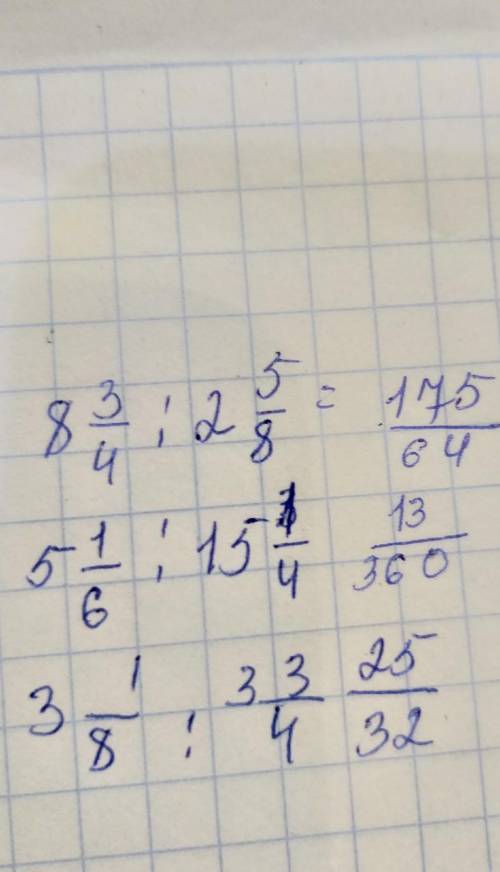 8 3/4 : 2 5/8 = 175/64
5 1/6 : 15 1/4 13/360
3 1/8 : 3 3/4 25/32